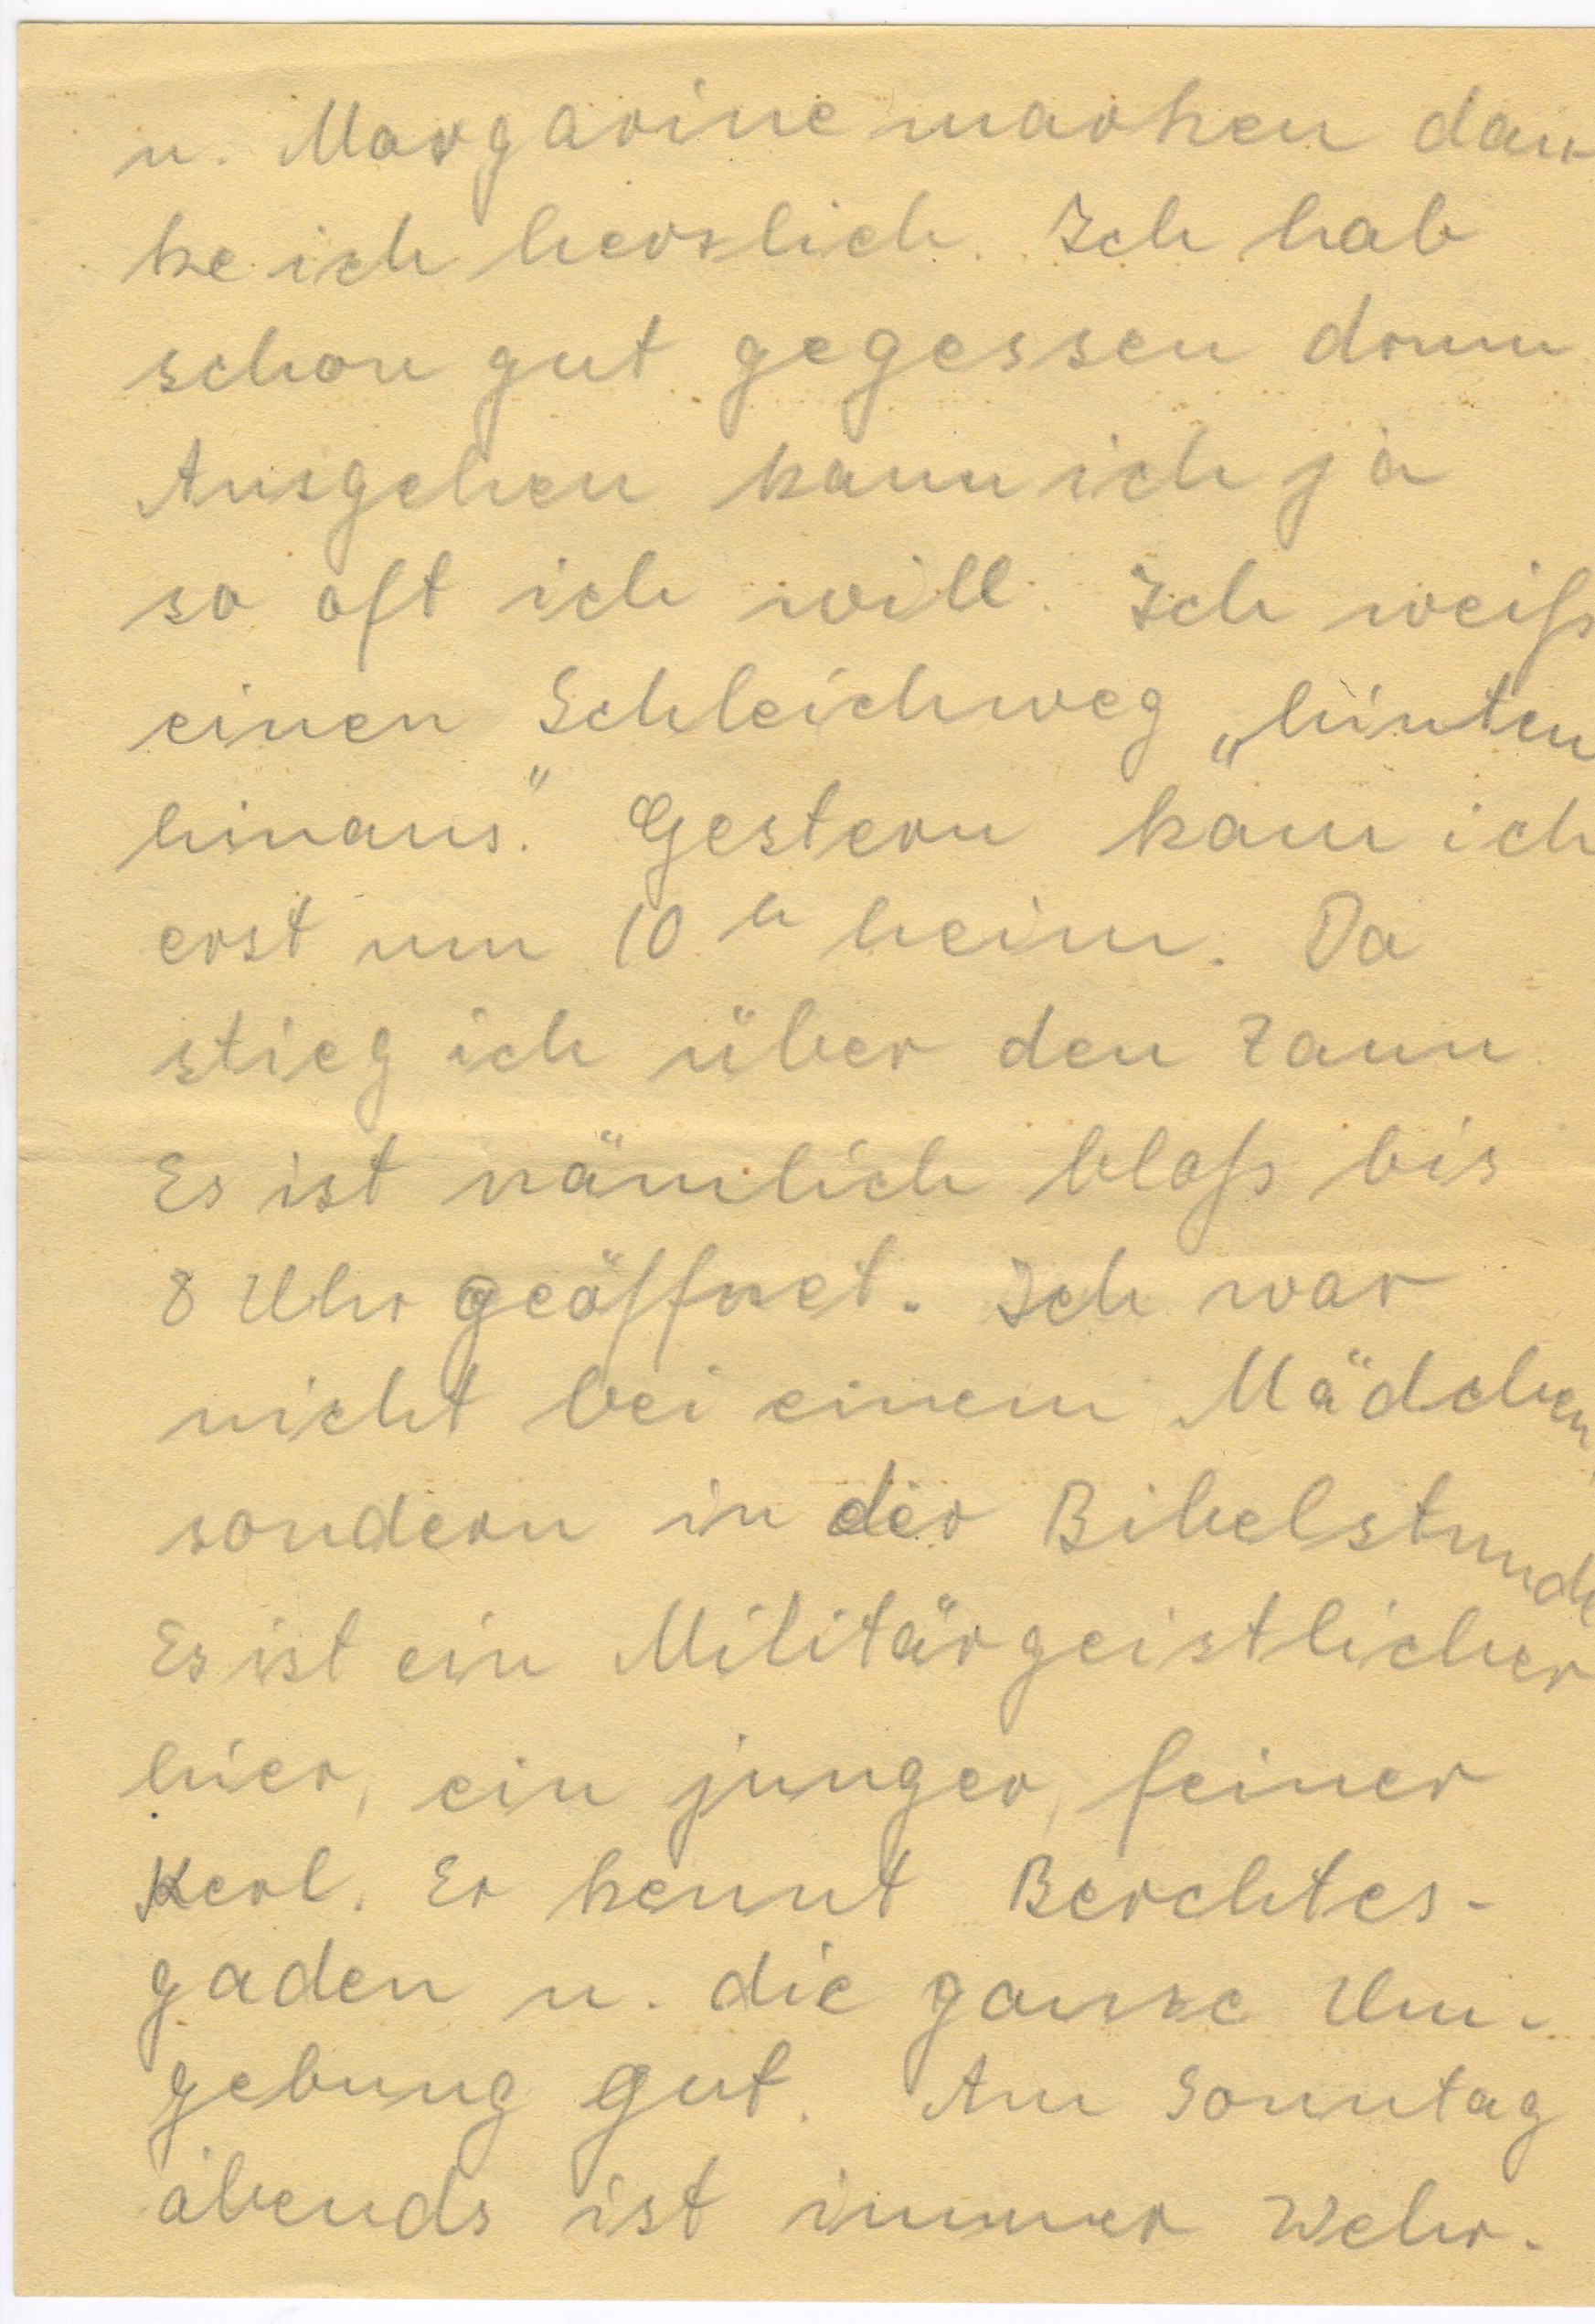 u. Margarinemarken dan
ke ich herzlich. Ich hab
schon gut gegessen drum
Ausgehen kann ich ja
so oft ich will. Ich weiß
einen Schleichweg „hinten
hinaus." Gestern kam ich
erst um 10 h heim. Da
stieg ich über den Zaun
Es ist nämlich bloß bis
8 Uhr geöffnet. Ich war
nicht bei einem Mädchen,
sondern in der Bibelstunde
Es ist ein Militärgeistlicher
hier, ein junger, feiner
Kerl. Er kennt Berchtes-
gaden u. die ganze Um-
gebung gut. Am Sonntag
abends ist immer Wehr-